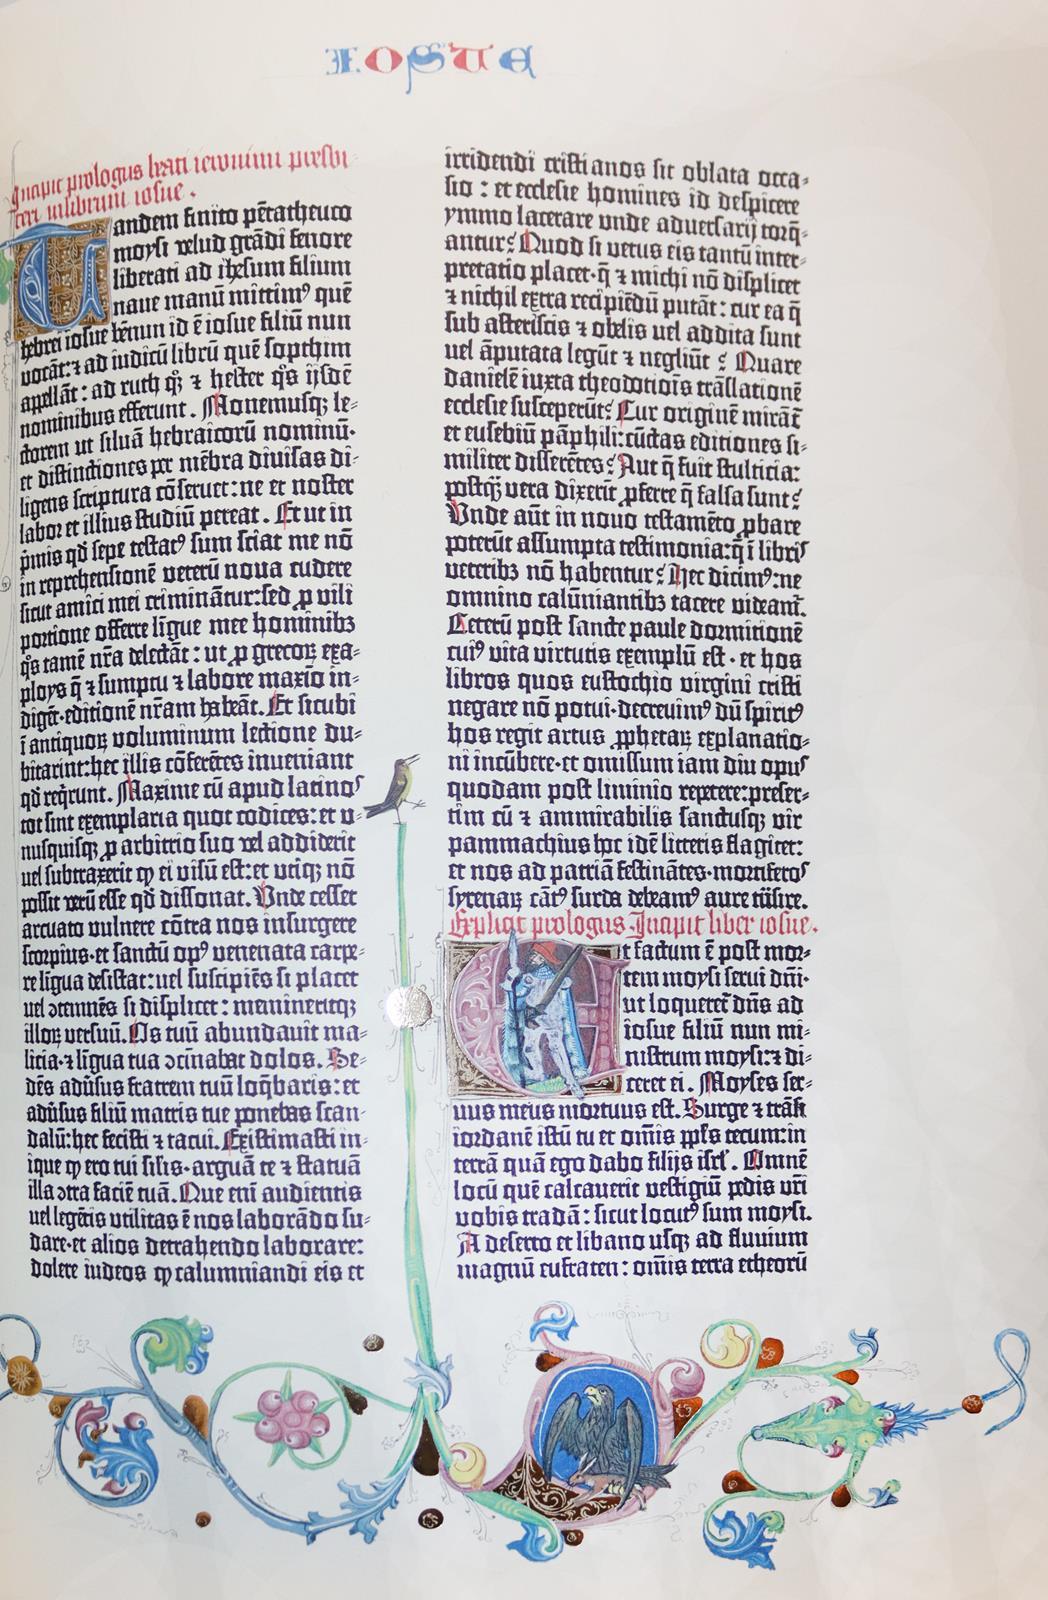 IOSUE
Incipit prologus beati ieronimi presbi-
teri in librum iosue.
Tandem finito pētatheuco
moysi velud grādi fenore
liberati ad ihesum filium
naue manū mittimꝰ quē
hebrei iosue bēnun id ē iosue filiū nun
vocāt: ⁊ ad iudicū librū quē sopthim
appellāt: ad ruth qꝫ ⁊ hester qͦs ijsdē
nominibus efferunt. Monemusqꝫ le-
ctorem ut siluā hebraicorū nominū·
et distinctiones per mēbra diuisas di-
ligens scriptura cōseruet: ne et noster
labor et illius studiū pereat. Et ut in
p̄mis qđ sepe testatꝰ sum sciat me nō
in reprehensionē veterū noua cudere
sicut amici mei criminātur: sed ꝓ uili
portione offerre līgue mee hominibꝫ
qͦs tamē nr̄a delectāt: ut ꝓ grecoꝝ exa-
ploys q̄ ⁊ sumptu ⁊ labore maxīo in-
digēt·editionē nr̄am habeāt. Et sicubi
ī antiquoꝝ voluminum lectione du-
bitarint: hec illis cōferētes inueniant
qđ reqͥrunt. Maxime cū apud latinos
tot sint exemplaria quot codices: et u-
nusquisqꝫ ꝓ arbitrio suo vel addiderit
uel subtraxerit qꝙ ei visū est: et utiqꝫ nō
possit verū esse qđ dissonat. Unde cesset
arcuato vulnere cōtra nos insurgere
scorpius·et sanctū opꝰ venenata carpe-
re līgua desistat: uel suscipiēs si placet
uel ꝯtemnēs si displicet: memineritqꝫ
illoꝝ versuū. Os tuū abundauit ma-
licia·⁊ līgua tua ꝯcīnabat dolos. Se-
dēs adūsus fratrem tuū loq̄baris: et
adūsus filiū matris tue ponebas scan-
dalū: hec fecisti ⁊ tacui. Existimasti in-
ique qꝙ ero tui silis·arguā te ⁊ statuā
illa ꝯtra faciē tuā. Que eni audientis
uel legētis utilitas ē nos laborādo su-
dare·et alios detrahendo laborare:
dolere iudeos qꝙ calumniandi eis et
irridendi cristianos sit oblata occa-
sio: et ecclesie homines id despicere
ymmo lacerare unde aduersarij torq̄-
antur? Quod si vetus eis tantū inter-
pretatio placet·q̄ ⁊ michi nō displicet
⁊ nichil extra recipiēdū putāt: cur ea q̄
sub asteriscis ⁊ obelis uel addita sunt
uel āputata legūt ⁊ negliūt? Quare
danielē iuxta theodotiōis trāslationē
ecclesie susceperūt? Cur originē mirāt̄
et eusebiū pāphili: cūctas editiones si-
militer disserētes? Aut q̄ fuit stulticia:
postqꝫ vera dixerīt ꝓferre q̄ falsa sunt?
Unde aūt in nouo testamēto ꝓbare
poterūt assumpta testimonia: q̄ ī libris
veteribꝫ nō habentur? Hec dicimꝰ: ne
omnino calūniantibꝫ tacere videam̄.
Ceterū post sancte paule dormitionē
cuiꝰ vita virtutis exemplū est·et hos
libros quos eustochio virgini cristi
negare nō potui·decreuimꝰ dū spiritꝰ
hos regit artus ꝓphetaꝝ explanatio-
ni incūbere·et omissum iam diu opus
quodam post liminio repetere: preser-
tim cū ⁊ ammirabilis sanctusqꝫ vir
pammachius hoc idē litteris flagitet:
et nos ad patriā festinātes·mortiferos
syrenaꝝ cātꝰ surda debeamꝰ aure trāsire.
Explicit prologus. Incipit liber iosue.
Et factum ē post mor-
tem moysi serui dn̄i·
ut loqueret̄ dn̄s ad
iosue filiū nun mi-
nistrum moysi: ⁊ di-
ceret ei. Moyses ser-
uus meus mortuus est. Surge ⁊ trāsi
iordanē istū tu et om̄is ppl̄s tecum: in
terrā quā ego dabo filijs isrl̄. Omnē
locū quē calcauerit vestigiū pedis vr̄i
vobis tradā: sicut locutꝰ sum moysi.
A deserto et libano usqꝫ ad fluuium
magnū eufraten: om̄is terra etheorū